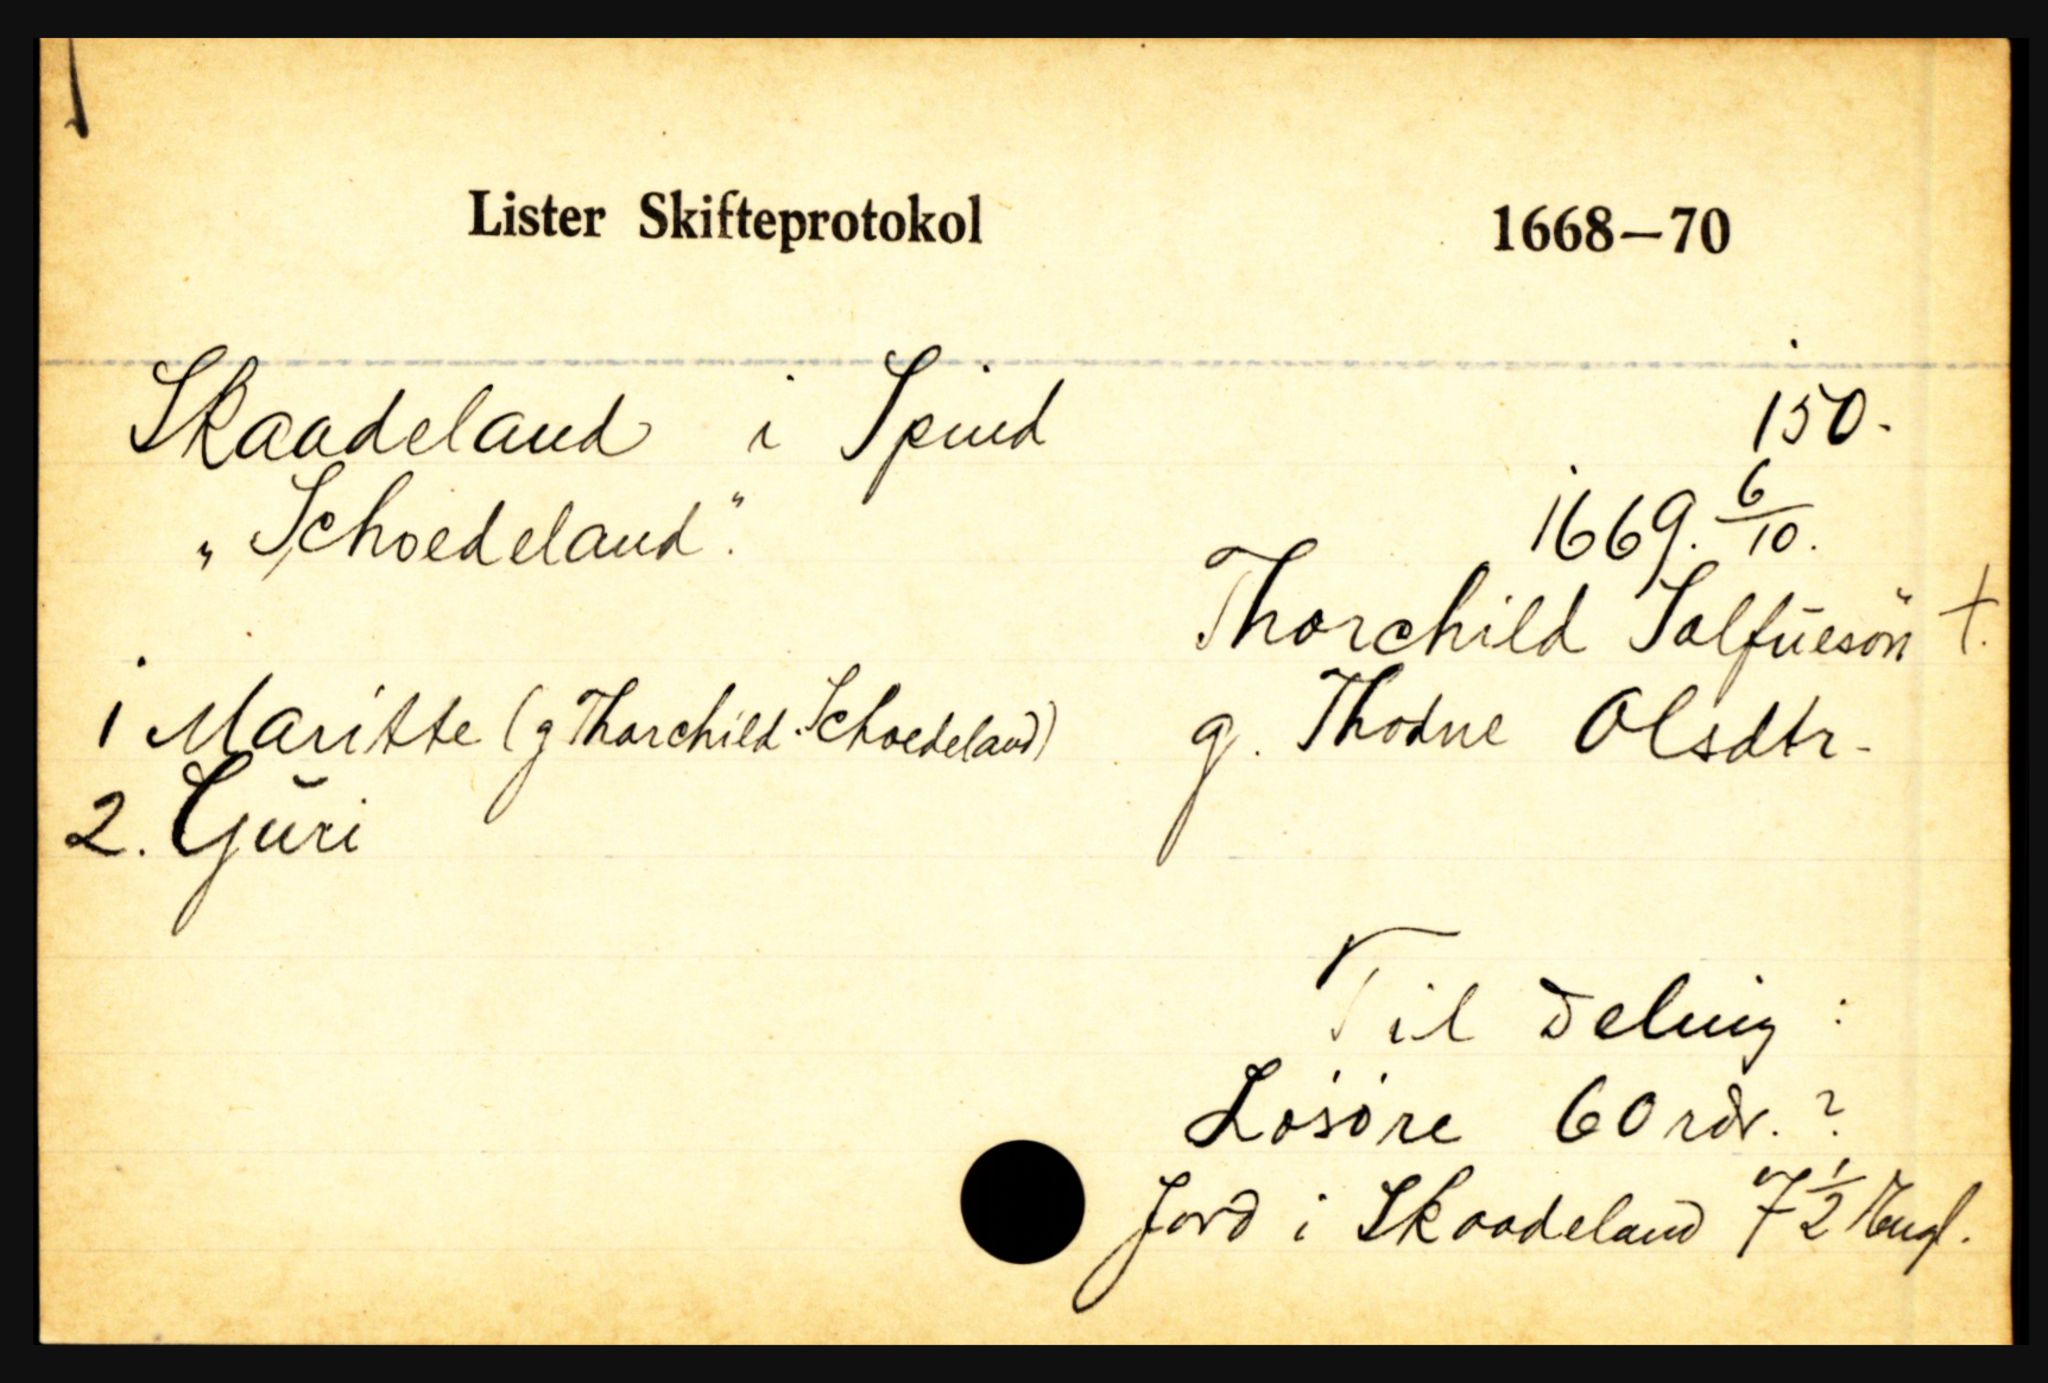 Lister Skifteprotokol 1668—70
Skaadeland i Spind 150.
„Schoedeland". 1669. 6/10.
Thorchild Salfüesön †.
1 Maritte (g Thorchild Schoedeland) g. Thodne Olsdtr.
2. Guri
Til Deling:
Løsøre 60 rdr. ?
Jord i Skaadeland 7 1/2 Engl.